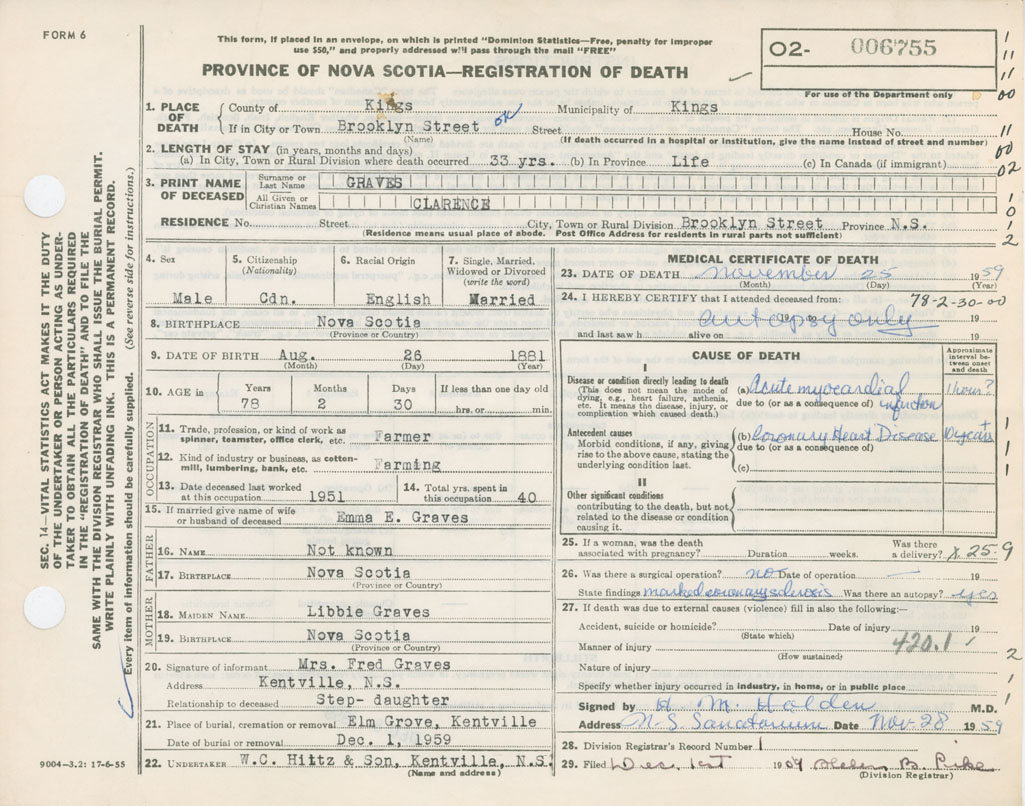 FORM 6
This form, if placed in an envelope, on which is printed "Dominion Statistics—Free, penalty for improper
use $50," and properly addressed will pass through the mail "FREE"
PROVINCE OF NOVA SCOTIA—REGISTRATION OF DEATH
O2- 006755
For use of the Department only
1. PLACE OF DEATH
County of Kings Municipality of Kings
If in City or Town Brooklyn Street OK Street House No.
(Name) (If death occurred in a hospital or institution, give the name instead of street and number)
2. LENGTH OF STAY (in years, months and days)
(a) In City, Town or Rural Division where death occurred 33 yrs. (b) In Province Life (c) In Canada (if immigrant)
3. PRINT NAME OF DECEASED
Surname or Last Name GRAVES
All Given or Christian Names CLARENCE
RESIDENCE No. Street City, Town or Rural Division Brooklyn Street Province N.S.
(Residence means usual place of abode. Post Office Address for residents in rural parts not sufficient)
4. Sex
Male
5. Citizenship
(Nationality)
Cdn.
6. Racial Origin
English
7. Single, Married,
Widowed or Divorced
(write the word)
Married
8. BIRTHPLACE Nova Scotia
(Province or Country)
9. DATE OF BIRTH Aug. 26 1881
(Month) (Day) (Year)
10. AGE in
Years Months Days If less than one day old
78 2 30 hrs. or min.
OCCUPATION
11. Trade, profession, or kind of work as
spinner, teamster, office clerk, etc. Farmer
12. Kind of industry or business, as cotton-
mill, lumbering, bank, etc. Farming
13. Date deceased last worked
at this occupation 1951
14. Total yrs. spent in
this occupation 40
15. If married give name of wife
or husband of deceased Emma E. Graves
FATHER
16. NAME Not known
17. BIRTHPLACE Nova Scotia
(Province or Country)
MOTHER
18. MAIDEN NAME Libbie Graves
19. BIRTHPLACE Nova Scotia
(Province or Country)
20. Signature of informant Mrs. Fred Graves
Address Kentville, N.S.
Relationship to deceased Step- daughter
21. Place of burial, cremation or removal Elm Grove, Kentville
Date of burial or removal Dec. 1, 1959
22. UNDERTAKER W.C. Hiltz & Son, Kentville, N.S.
(Name and address)
MEDICAL CERTIFICATE OF DEATH
23. DATE OF DEATH November 25 1959
(Month) (Day) (Year)
24. I HEREBY CERTIFY that I attended deceased from: 78-2-30-00
19 autopsy only 19
and last saw h alive on 19
CAUSE OF DEATH
Approximate
interval be-
tween onset
and death
I
Disease or condition directly leading to death
(This does not mean the mode of
dying, e.g., heart failure, asthenia,
etc. It means the disease, injury, or
complication which caused death.)
(a) Acute myocardial 1 hour?
due to (or as a consequence of) infarction
Antecedent causes
Morbid conditions, if any, giving
rise to the above cause, stating the
underlying condition last.
(b) Coronary Heart Disease 10 years +
due to (or as a consequence of)
(c)
II
Other significant conditions
contributing to the death, but not
related to the disease or condition
causing it.
25. If a woman, was the death
associated with pregnancy? Duration weeks. Was there
a delivery? X 25-9
26. Was there a surgical operation? no Date of operation — 19
State findings marked coronary sclerosis Was there an autopsy? yes
27. If death was due to external causes (violence) fill in also the following:—
Accident, suicide or homicide? Date of injury 19
(State which)
Manner of injury 420.1
(How sustained)
Nature of injury
Specify whether injury occurred in industry, in home, or in public place
Signed by H. M. Holden M.D.
Address N-S. Sanatorium Date Nov-28 1959
28. Division Registrar's Record Number 1
29. Filed Dec. 1st 1959 Helen B. Pike
(Division Registrar)
SEC. 14—VITAL STATISTICS ACT MAKES IT THE DUTY
OF THE UNDERTAKER OR PERSON ACTING AS UNDER-
TAKER TO OBTAIN ALL THE PARTICULARS REQUIRED
IN THE "REGISTRATION OF DEATH" AND TO FILE THE
SAME WITH THE DIVISION REGISTRAR WHO SHALL ISSUE THE BURIAL PERMIT.
WRITE PLAINLY WITH UNFADING INK. THIS IS A PERMANENT RECORD.
Every item of information should be carefully supplied. (See reverse side for instructions.)
9004—3.2: 17-6-55
1
11
11
00
11
00
02
1
0
1
2
1
1
1
2
1
1